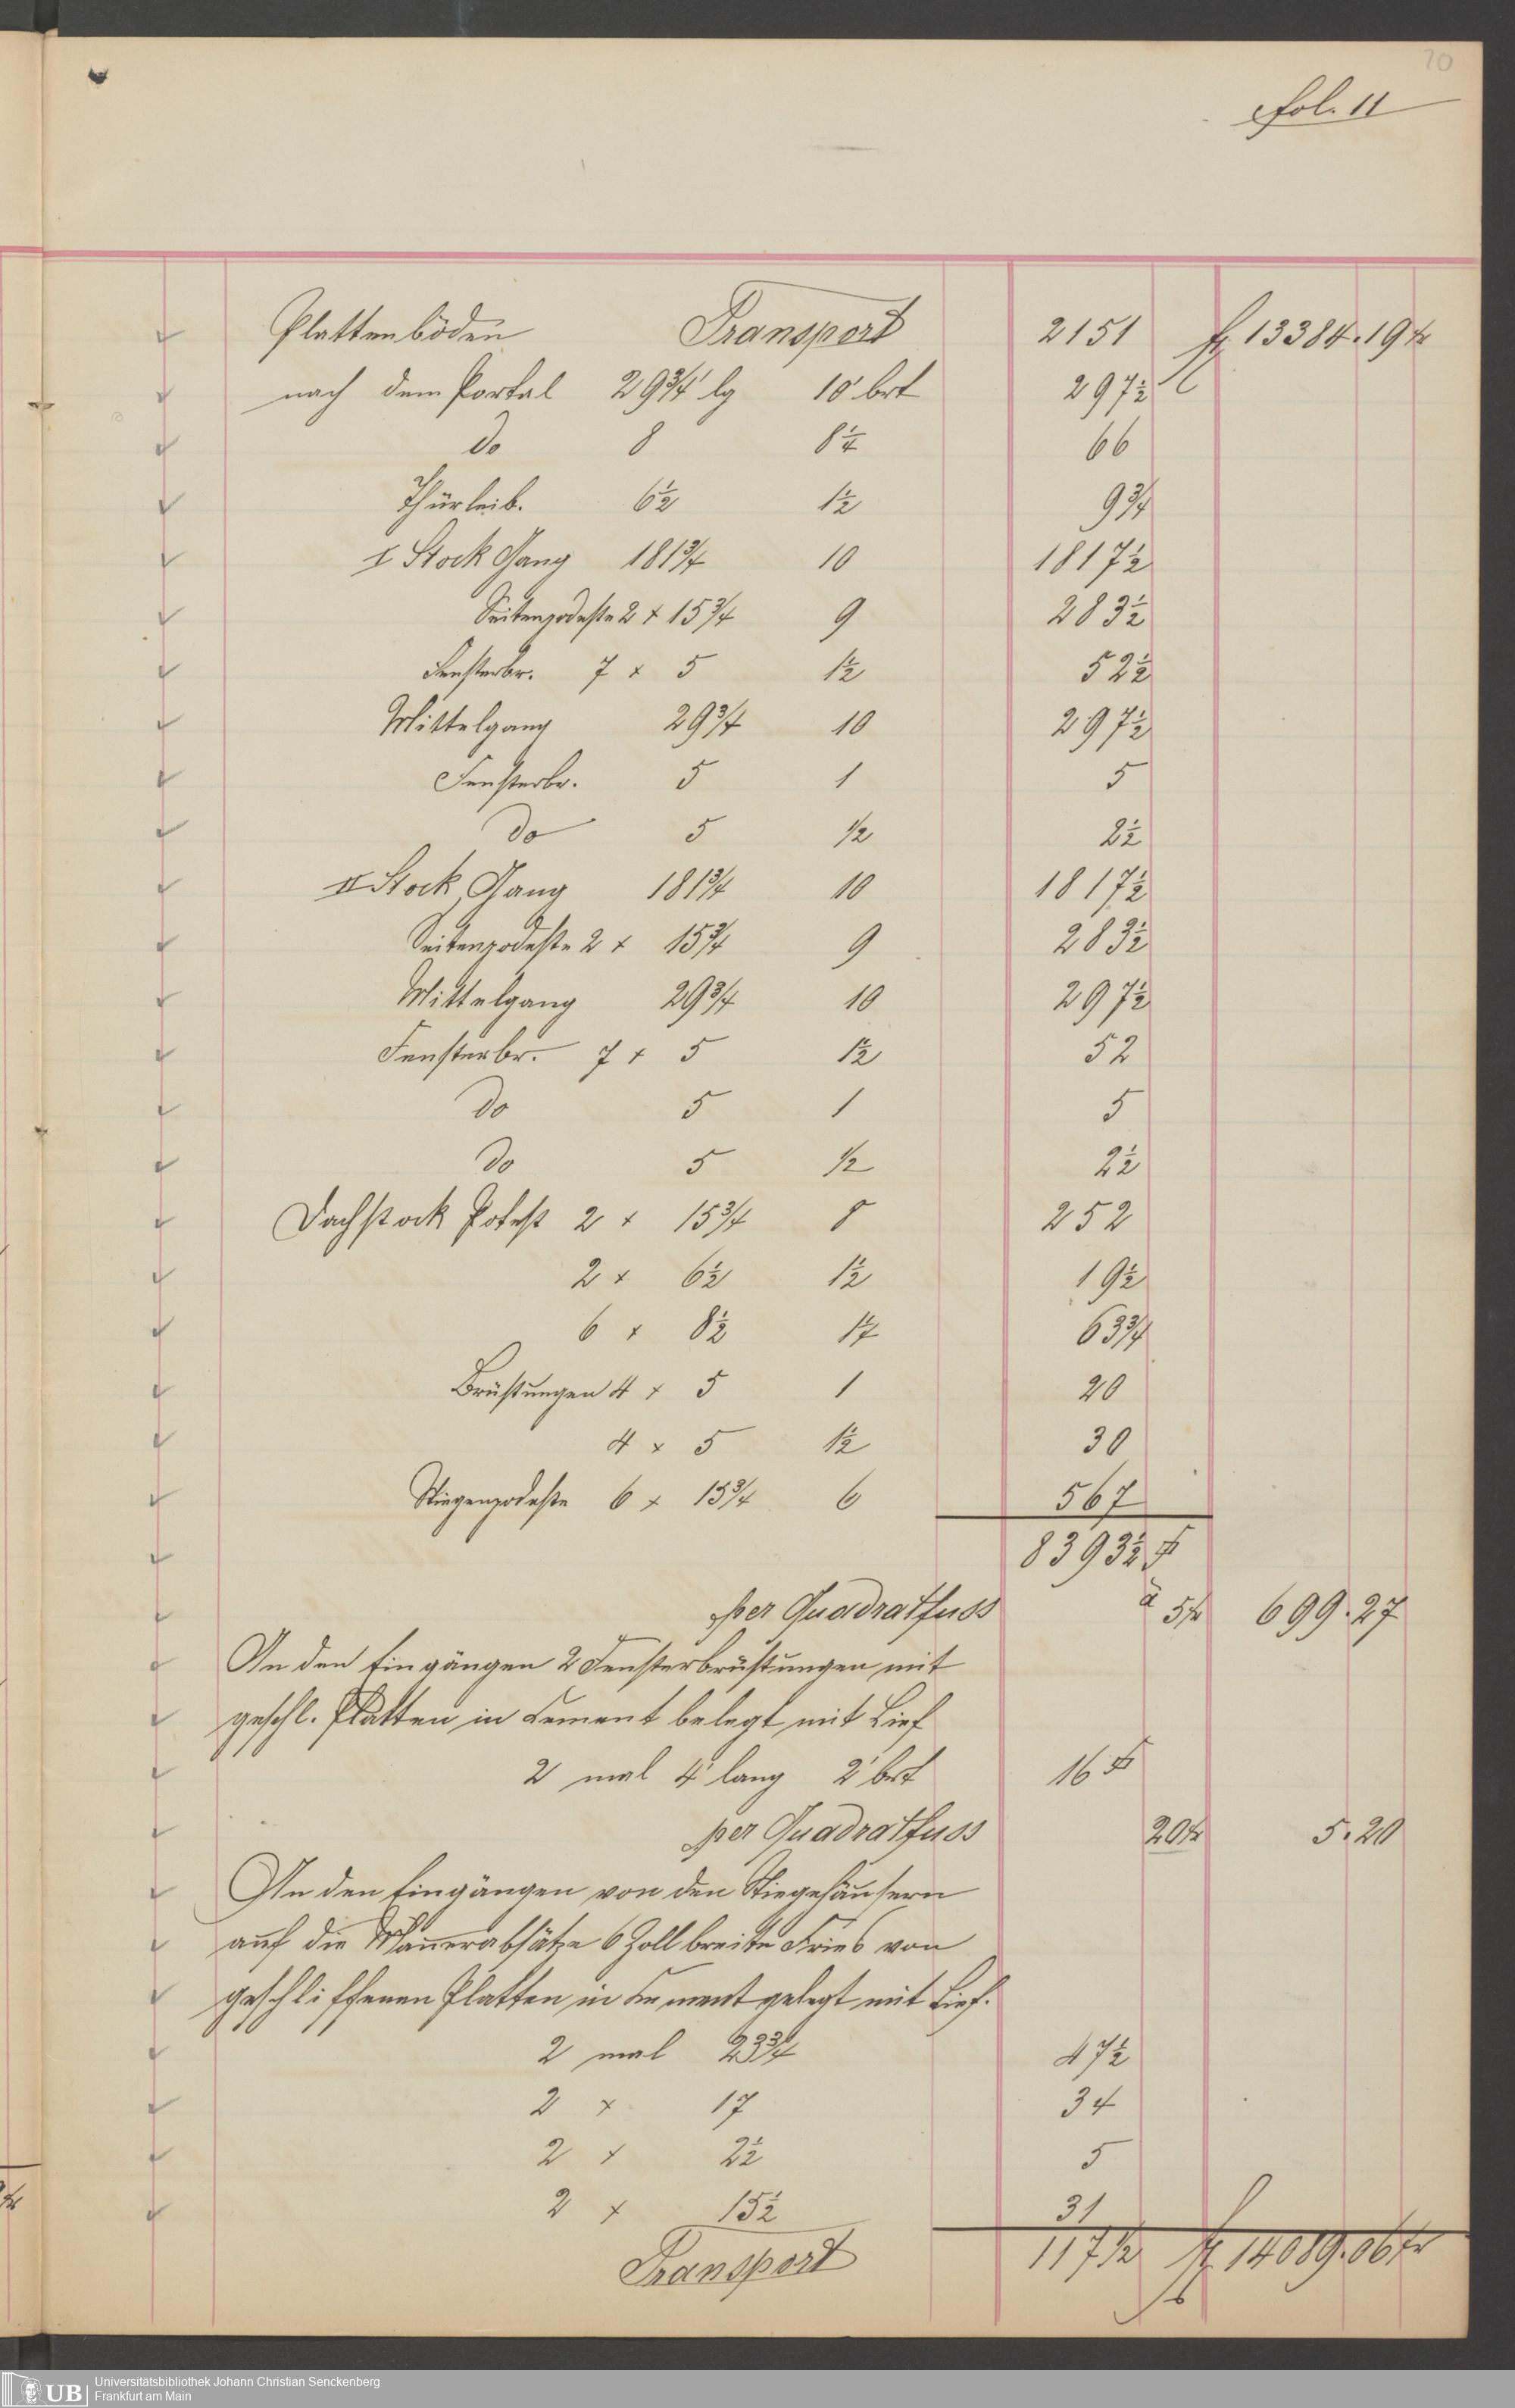 70
fol. 11
Plattenböden Transport 2151 fl 13384.19 kr
nach dem Portal 29¾' lg 10' brt 297½
do 8 8¼ 66
Thürleib. 6½ 1½ 9¾
I Stock Gang 181¾ 10 1817½
Seitenpodeste 2 x 15¾ 9 283½
Fensterbr. 7 x 5 1½ 52½
Mittelgang 29¾ 10 297½
Fensterbr. 5 1 5
do 5 ½ 2½
II Stock, Gang 181¾ 10 1817½
Seitenpodeste 2 x 15¾ 9 283½
Mittelgang 29¾ 10 297½
Fensterbr. 7 x 5 1½ 52
do 5 1 5
do 5 ½ 2½
Dachstock Potest 2 x 15¾ 8 252
2 x 6½ 1½ 19½
6 x 8½ 1¼ 63¾
Brüstungen 4 x 5 1 20
4 x 5 1½ 30
Stiegenpodeste 6 x 15¾ 6 567
8393½
per Quadratfuss à 5 kr 699.27
An den Eingängen 2 Fensterbrüstungen mit
geschl. Platten in Cement belegt mit Lief
2 mal 4' lang 2' brt 16
per Quadratfuss 20 kr 5.20
An den Eingängen von den Stiegehäusern
auf die Mauerabsätze 6 Zoll breite Fries von
geschliffenen Platten in Cement gelegt mit Lief.
2 mal 23¾ 47½
2 x 17 34
2 x 2½ 5
2 x 15½ 31
Transport 117½ fl 14089.06 kr
UB Universitätsbibliothek Johann Christian Senckenberg
Frankfurt am Main